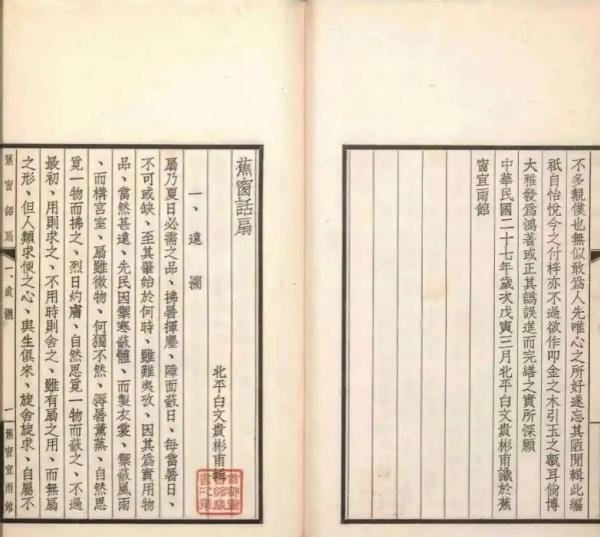 不多覯僕也無似敢爲人先唯心之所好遂忘其陋閒輯此編
祇自怡悅今之付梓亦不過欲作叩金之木引玉之甎耳倘博
大雅發爲鴻著或正其譌誤進而完繕之實所深願
中華民國二十七年歲次戊寅三月北平白文貴彬甫識於蕉
窗宜雨館
蕉窗話扇
北平白文貴彬甫輯
一、遠溯
扇乃夏日必需之品、拂暑揮塵、障面蔽日、每當暑日、
不可或缺、至其肇始於何時、雖難夷攷、因其爲實用物
品、當然甚遠、先民因禦寒蔽體、而製衣裳、禦蔽風雨
、而構宮室、扇雖微物、何獨不然、溽暑薰蒸、自然思
覓一物而拂之、烈日灼膚、自然思覓一物而蔽之、不過
最初、用則求之、不用時則舍之、雖有扇之用、而無扇
之形、但人類求便之心、與生俱來、旋舍旋求、自屬不
蕉窗話扇
一、遠溯
一
蕉窗宜雨館